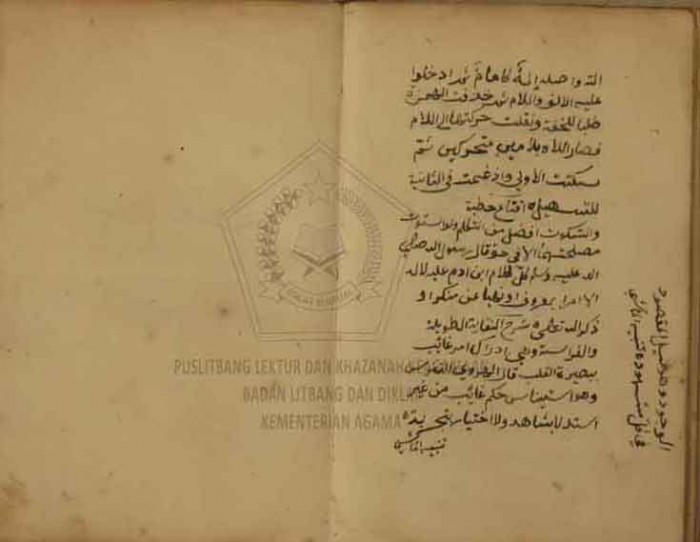 الله واصله إله كامام ثم ادخلوا
عليه الالف واللام ثم حذفت الهمزة
طلبا للخفة ونقلت حركتها الى اللام
فصار اللاه بلامين متحركين ثم
سكنت الاولى وادغمت في الثانية
للتسهيل ه افتتاح خطبة
والسكوت افضل من التكلم ولو استوت
مصلحتهما الا في حق قال رسول الله صلى
الله عليه وسلم كل كلام ابن ادم عليه لا له
الا امرا بمعروف او نهيا عن منكر او
ذكر الله تعالى ه شرح النقاية الطويلة
والفراسة وهي ادراك امر غائب
ببصيرة القلب قال الهروي الفراسة
وهو استيناس حكم غائب من غير
استدلال بشاهد ولا اختبار بتجربة ه
الوجود وهو المقصود
PUSLITBANG LEKTUR DAN KHAZANAH KEAGAMAAN
BADAN LITBANG DAN DIKLAT
KEMENTERIAN AGAMA